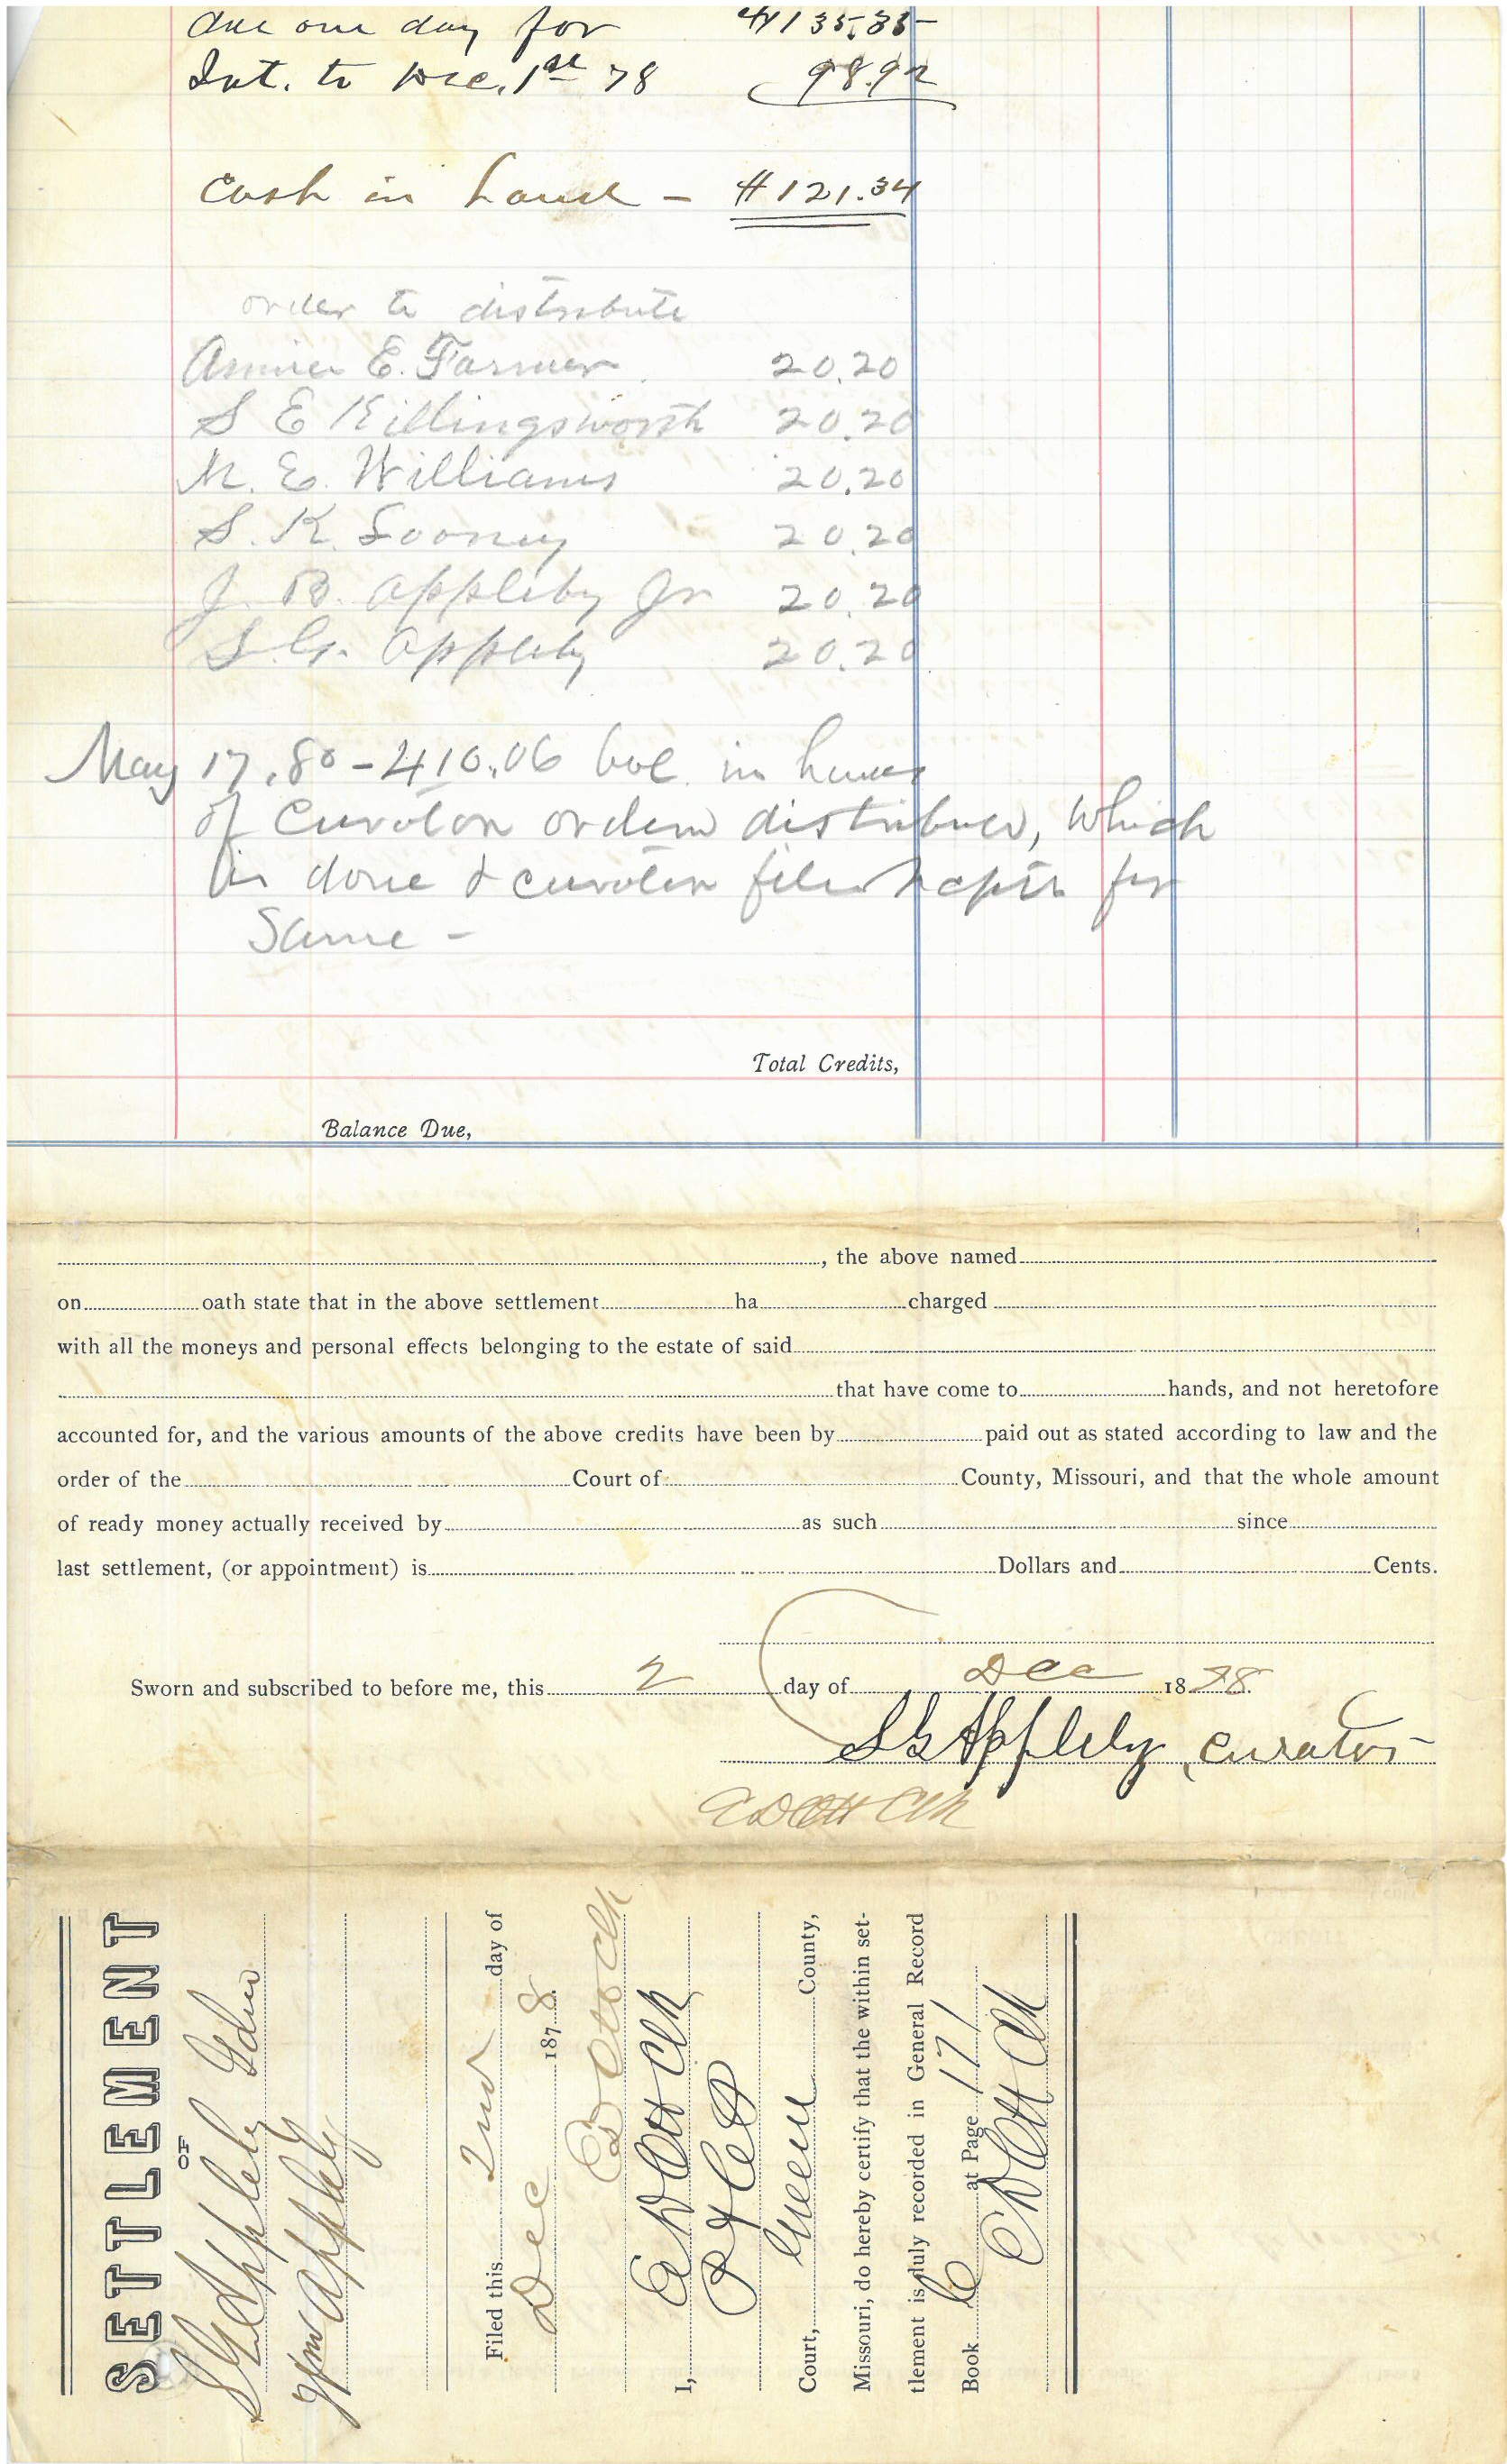 due one day for $135.35
Int. to Dec. 1st 78 98.92
Cash in hand - $121.34
order to distribute
E. Farmer 20.20
S E Killingsworth 20.20
M. E. Williams 20.20
S. K. Looney 20.20
J. B. Appleby Jr 20.20
S. G. Appleby 20.20
May 17, 80 - 410.06 bal. in hands
of Curator orderd distributed, which
is done & curator files recpts for
Same -
Total Credits,
Balance Due,
, the above named
on oath state that in the above settlement ha charged
with all the moneys and personal effects belonging to the estate of said
that have come to hands, and not heretofore
accounted for, and the various amounts of the above credits have been by paid out as stated according to law and the
order of the Court of County, Missouri, and that the whole amount
of ready money actually received by as such since
last settlement, (or appointment) is Dollars and Cents.
Sworn and subscribed to before me, this 2 day of Dec 1878.
S G Appleby, Curator
E D Ott Clk
SETTLEMENT
OF
S G Appleby
Wm Appleby
Filed this 2nd day of
Dec 1878.
E D Ott Clk
I, E D Ott Clk
Court, Green County,
Missouri, do hereby certify that the within set-
tlement is duly recorded in General Record
Book C at Page 171
E D Ott Clk